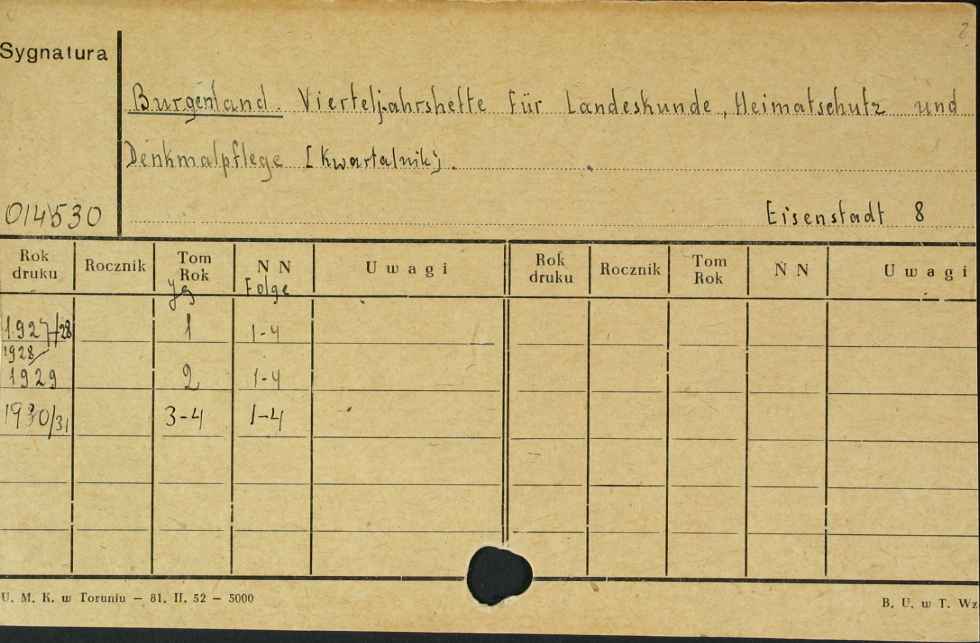 2
Sygnatura
Burgenland. Vierteljahrshefte für Landeskunde, Heimatschutz und
Denkmalpflege [Kwartalnik].
014530
Eisenstadt 8
Rok druku Rocznik Tom Rok N N Uwagi Rok druku Rocznik Tom Rok N N Uwagi
Jg Folge
1927/28 1 1-4
1928/
1929 2 1-4
1930/31 3-4 1-4
U. M. K. w Toruniu — 81. II. 52 — 5000
B. U. w T. Wz